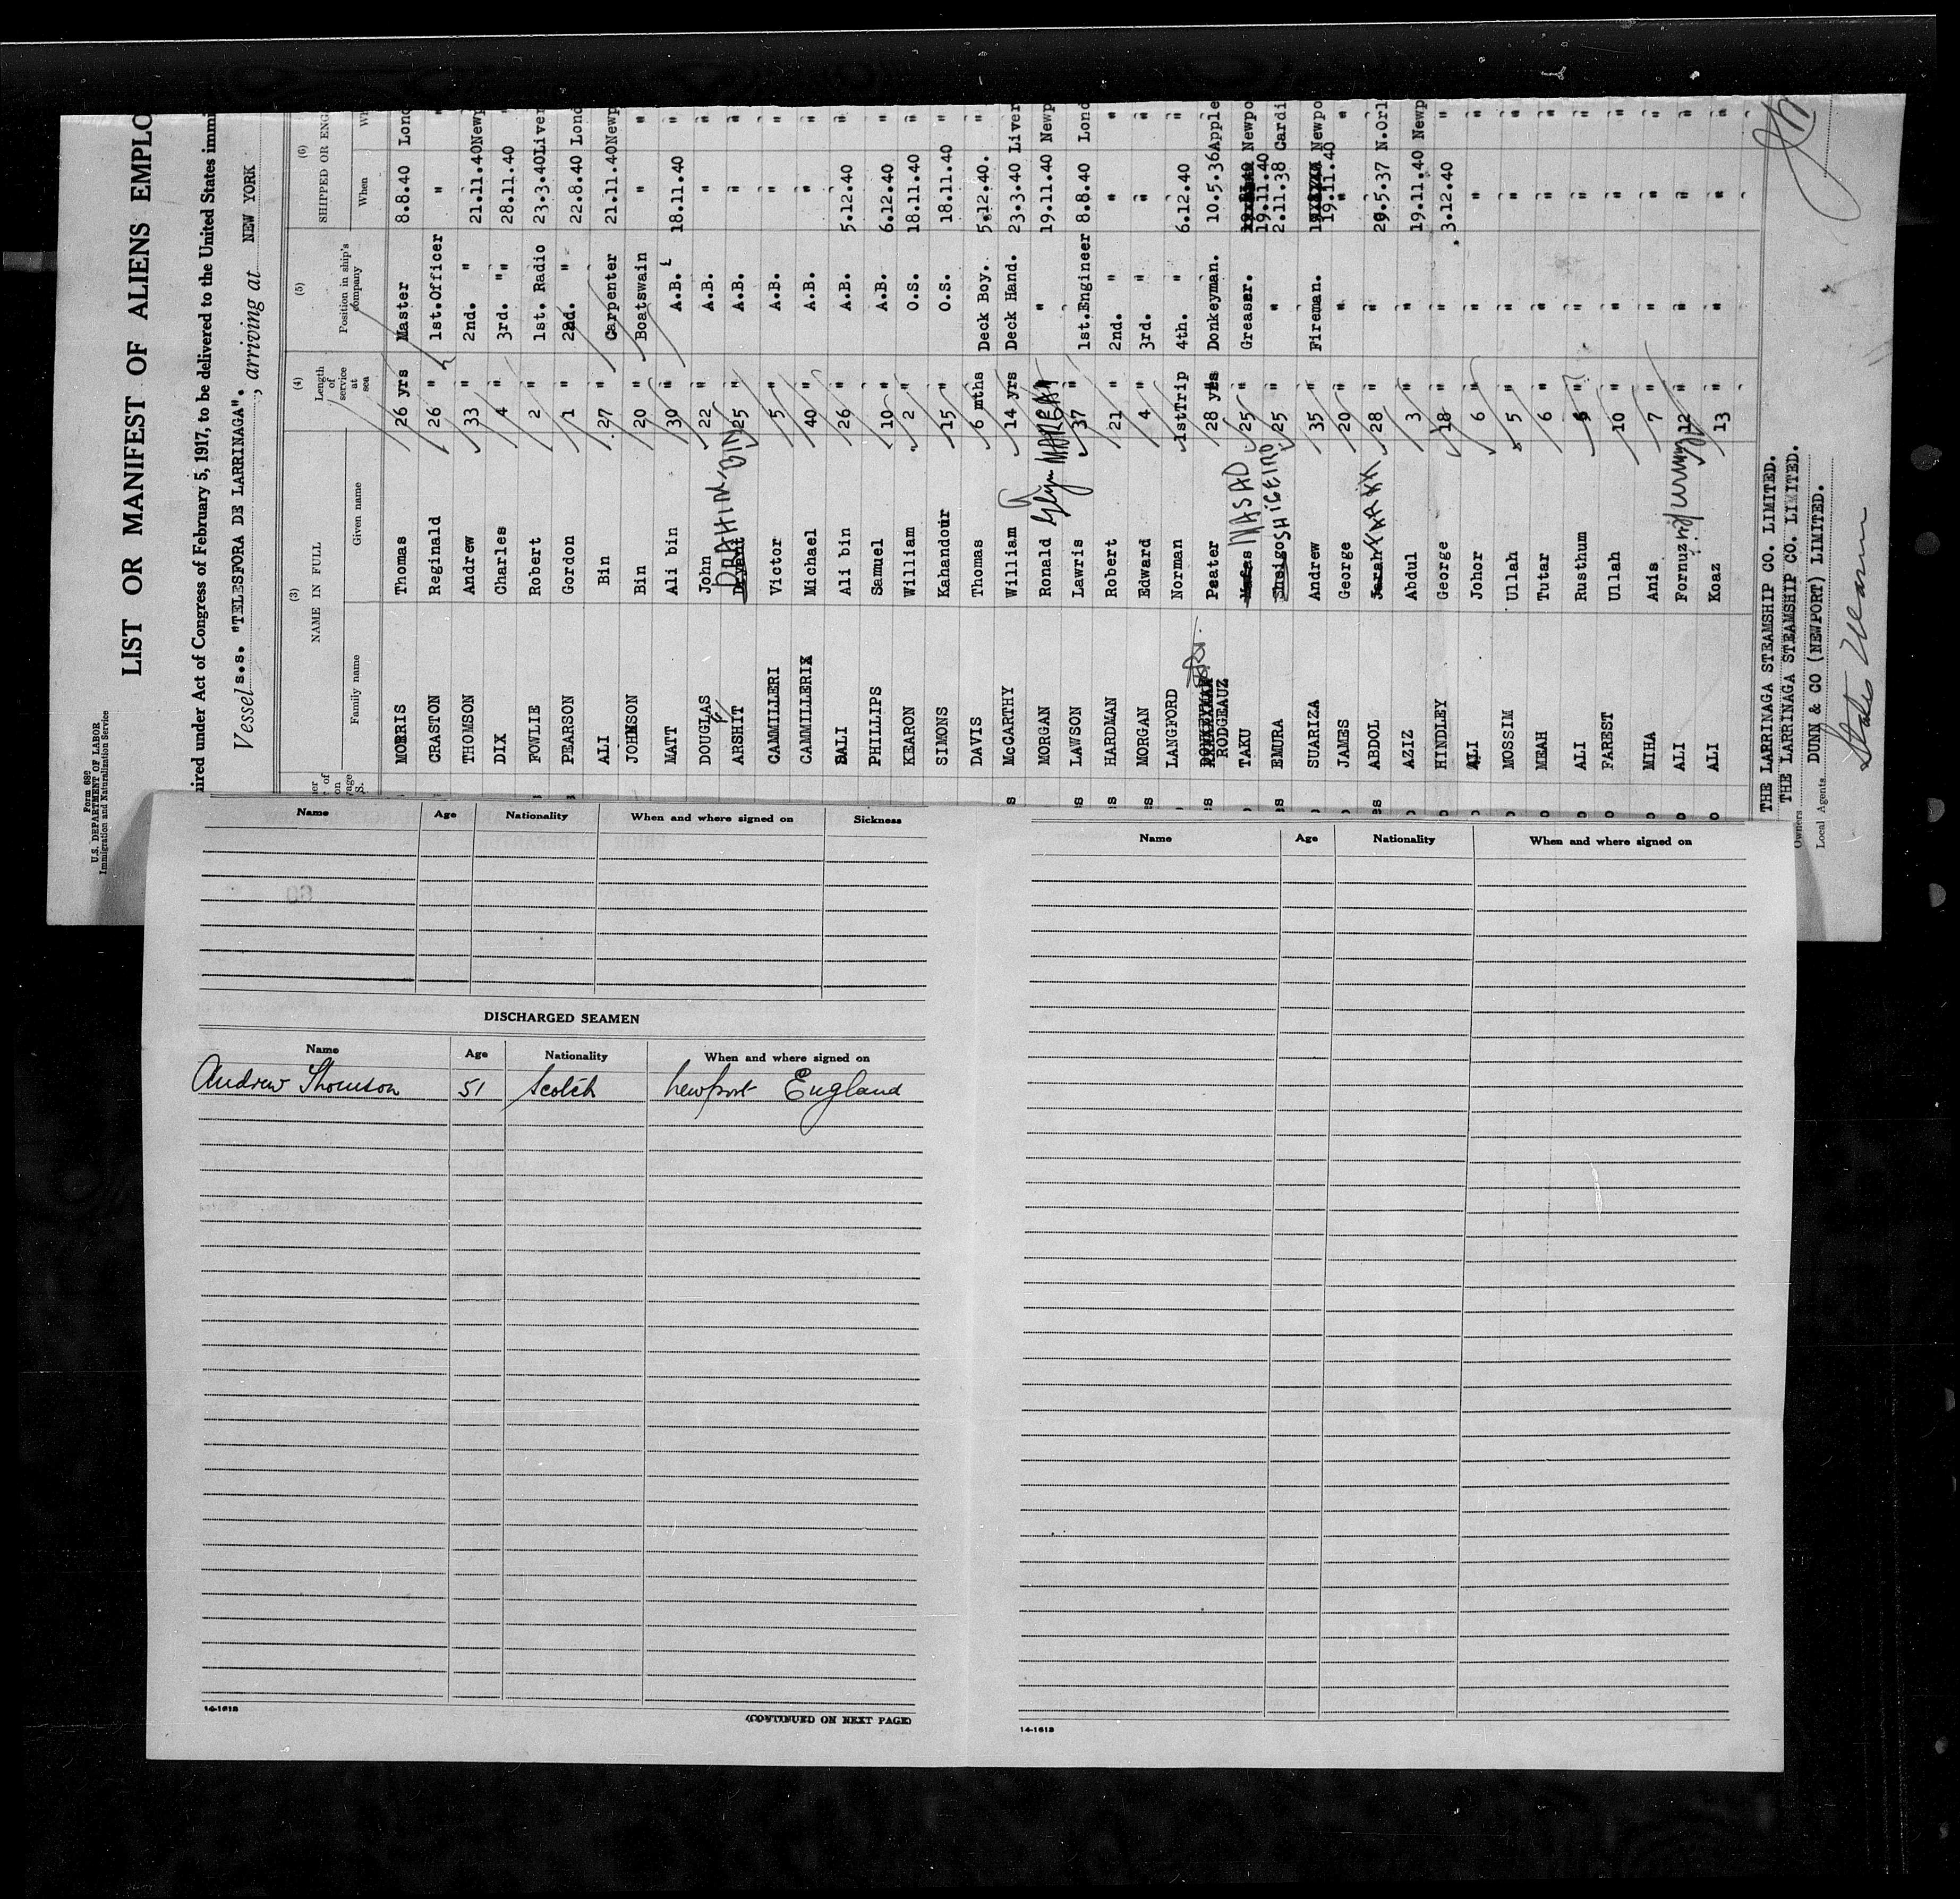 Form 689
U.S. DEPARTMENT OF LABOR
Immigration and Naturalization Service
LIST OR MANIFEST OF ALIENS EMPLO
uired under Act of Congress of February 5, 1917, to be delivered to the United States immi
Vessel s.s. "TELESFORA DE LARRINAGA". , arriving at NEW YORK
(3) (4) (5) (6)
NAME IN FULL Length of service at sea Position in ship's company SHIPPED OR ENG
Family name Given name When Wh
MORRIS Thomas 26 yrs Master 8.8.40 Lond
CRASTON Reginald 26 " 1st.Officer " "
THOMSON Andrew 33 " 2nd. " 21.11.40 Newp
DIX Charles 4 " 3rd. "" 28.11.40 "
FOWLIE Robert 2 " 1st. Radio 23.3.40 Liver
PEARSON Gordon 1 " 2nd. " 22.8.40 Lond
ALI Bin 27 " Carpenter 21.11.40 Newp
JOHNSON Bin 20 " Boatswain " "
MATT Ali bin 30 " A.B. 18.11.40 "
DOUGLAS John 22 " A.B. " "
ARSHIT DRAHIM BIN 25 " A.B. " "
CAMMILLERI Victor 5 " A.B. " "
CAMMILLERI Michael 40 " A.B. " "
BALI Ali bin 26 " A.B. 5.12.40 "
PHILLIPS Samuel 10 " A.B. 6.12.40 "
KEARON William 2 " O.S. 18.11.40 "
SIMONS Kahandour 15 " O.S. 18.11.40 "
DAVIS Thomas 6 mths Deck Boy. 5.12.40. "
McCARTHY William 14 yrs Deck Hand. 23.3.40 Liver
MORGAN Ronald Glyn " 19.11.40 Newp
LAWSON Lawris 37 " 1st.Engineer 8.8.40 Lond
HARDMAN Robert 21 " 2nd. " " "
MORGAN Edward 4 " 3rd. " " "
LANGFORD Norman 1stTrip 4th. " 6.12.40 "
RODGEAUZ Peater 28 yrs Donkeyman. 10.5.36 Apple
TAKU MASAO 25 " Greaser. 19.11.40 Newpo
EMURA Sheigo SHIGEIRO 25 " " 2.11.38 Cardi
SUARIZA Andrew 35 " Fireman. 19.11.40 Newpo
JAMES George 20 " " " "
ABDOL Jarah 28 " " 29.5.37 N.Orl
AZIZ Abdul 3 " " 19.11.40 Newp
HINDLEY George 18 " " 3.12.40 "
ALI Johor 6 " " " "
MOSSIM Ullah 5 " " " "
MEAH Tutar 6 " " " "
ALI Rusthum " " " "
FAREST Ullah 10 " " " "
MIHA Anis 7 " " " "
ALI Fornuz 12 " " " "
ALI Koaz 13 " " " "
THE LARRINAGA STEAMSHIP CO. LIMITED.
Owners THE LARRINAGA STEAMSHIP CO. LIMITED.
Local Agents DUNN & CO (NEWPORT) LIMITED.
Name Age Nationality When and where signed on Sickness
DISCHARGED SEAMEN
Name Age Nationality When and where signed on
Andrew Thomson 51 Scotch Newport England
14-1618
(CONTINUED ON NEXT PAGE)
Name Age Nationality When and where signed on
14-1618